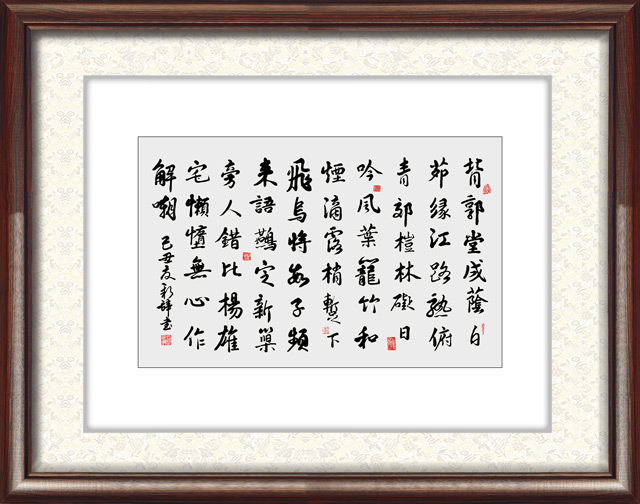 背郭堂成蔭白
茆緣江路熟俯
青郊榿林礙日
吟風葉籠竹和
煙滴露梢暫下
飛烏將數子頻
來語鷰定新巢
旁人錯比楊雄
宅懶惰無心作
解嘲
己丑書